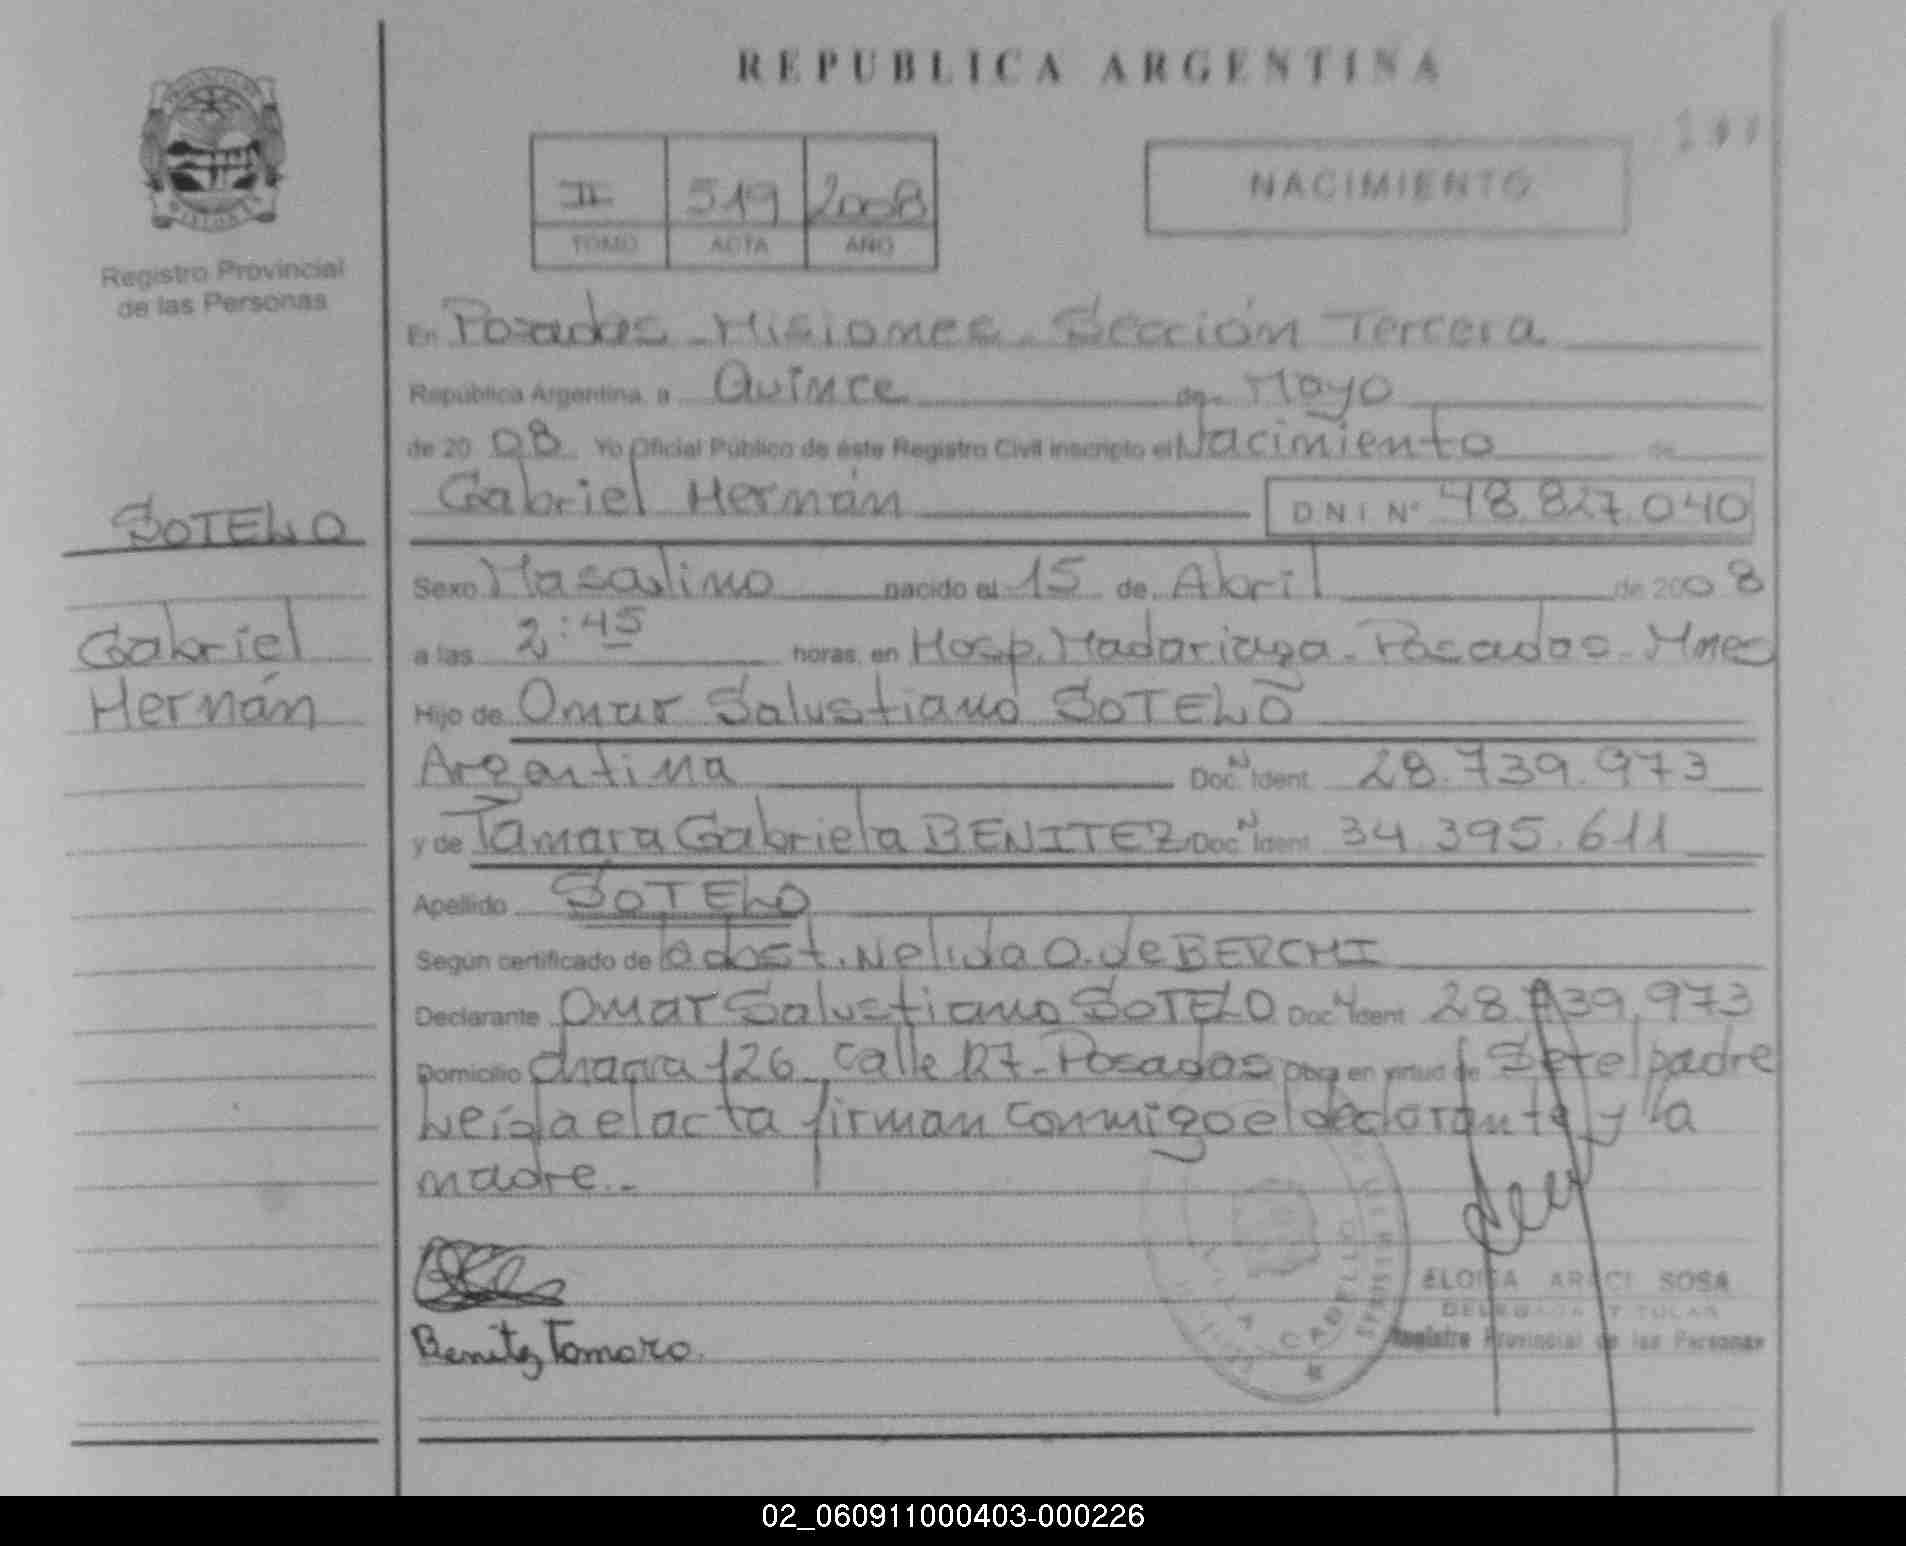 REPUBLICA ARGENTINA
NACIMIENTO
II 519 2008
TOMO ACTA AÑO
Registro Provincial
de las Personas
SOTELO
Gabriel
Hernán
En Posadas - Misiones - Sección Tercera
República Argentina, a Quince de Mayo
de 2008 Yo Oficial Público de éste Registro Civil inscripto el Nacimiento de
Gabriel Hernán DNI Nº 48.827.040
Sexo Masculino nacido el 15 de Abril de 2008
a las 2:45 horas, en Hosp. Madariaga - Posadas - Mnes
Hijo de Omar Salustiano SOTELO
Argentina Doc. N Ident. 28.739.973
y de Tamara Gabriela BENITEZ Doc. N Ident. 34.395.611
Apellido SOTELO
Según certificado de la obst. Nelida O. de BERCHI
Declarante Omar Salustiano SOTELO Doc. N Ident. 28.739.973
Domicilio chacra 126 - calle 127 - Posadas Obra en virtud de Ser el padre
Leída el acta firman conmigo el declarante y la
madre.-
Benitez Tamara.
CABELLO
MISIONES
ELOISA ARACI SOSA
DELEGADA TITULAR
Registro Provincial de las Personas
02_060911000403-000226